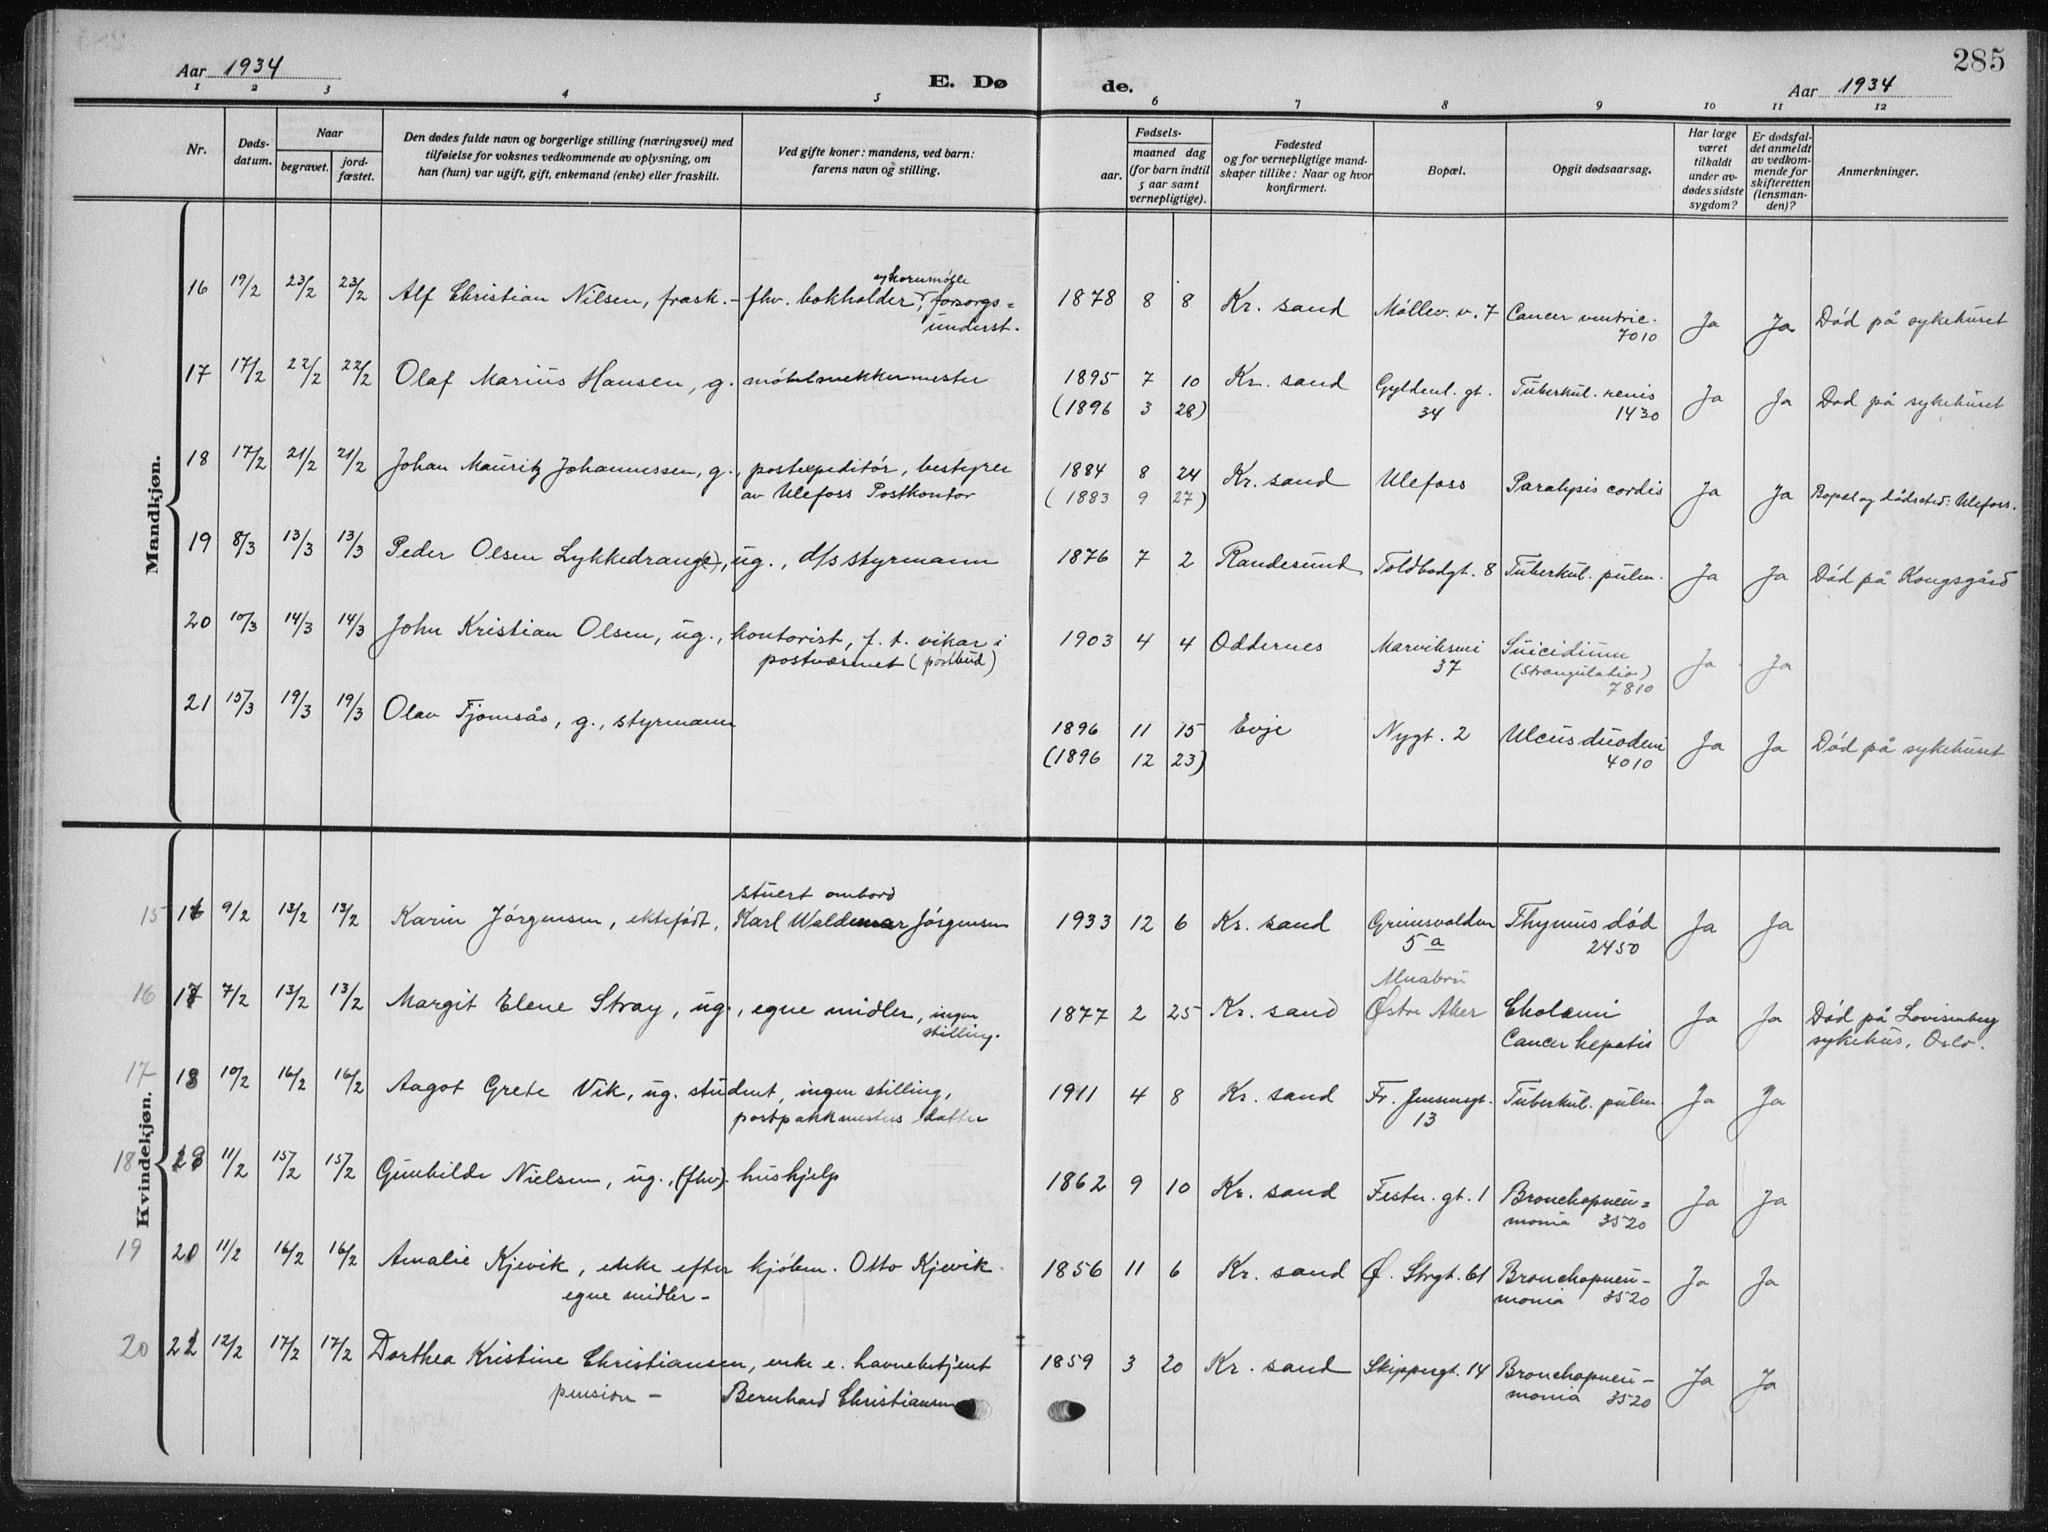 285
Aar 1934
E. Dø de.
Aar 1934
1 2 3 4 5 6 7 8 9 10 11 12
Nr.
Døds-
datum.
Naar
begravet.
jord-
fæstet.
Den dødes fulde navn og borgerlige stilling (næringsvei) med
tilføielse for voksnes vedkommende av oplysning, om
han (hun) var ugift, gift, enkemand (enke) eller fraskilt.
Ved gifte koner: mandens, ved barn:
farens navn og stilling.
Fødsels-
aar.
maaned dag
(for barn indtil
5 aar samt
vernepligtige).
Fødested
og for vernepligtige mand-
skaper tillike: Naar og hvor
konfirmert.
Bopæl.
Opgit dødsaarsag.
Har læge
været
tilkaldt
under av-
dødes sidste
sygdom?
Er dødsfal-
det anmeldt
av vedkom-
mende for
skifteretten
(lensman-
den)?
Anmerkninger.
Mandkjøn.
v/ kornmølle
16 19/2 23/2 23/2 Alf Christian Nilsen, frask. - fhv. bokholder, forsorgs= 1878 8 8 Kr. sand Møllev. v. 7 Cancer ventric. Ja Ja Død på sykehuset
underst. 7010
17 17/2 22/2 22/2 Olaf Marius Hansen, g. møbelsnekkermester 1895 7 10 Kr. sand Gyldenl. gt. Tuberkul. renis Ja Ja Død på sykehuset
(1896 3 28) 34 1430
18 17/2 21/2 21/2 Johan Mauritz Johannessen, g., postexpeditør, bestyrer 1884 8 24 Kr. sand Ulefoss Paralysis cordis Ja Ja Bopæl og dødssted: Ulefoss.
av Ulefoss Postkontor (1883 9 27)
19 8/3 13/3 13/3 Peder Olsen Lykkedrang(e), ug., d/s styrmann 1876 7 2 Randesund Toldbodgt. 8 Tuberkul. pulm. Ja Ja Død på Kongsgård
20 10/3 14/3 14/3 John Kristian Olsen, ug., kontorist, f. t. vikar i 1903 4 4 Oddernes Marviksvei Suicidium Ja Ja
postvæsenet (postbud) 37 (strangulatio)
7810
21 15/3 19/3 19/3 Olav Tjomsås, g., styrmann 1896 11 15 Evje Nygt. 2 Ulcus duodeni Ja Ja Død på sykehuset
(1896 12 23) 4010
Kvindekjøn.
stuert ombord
15 16 9/2 13/2 13/2 Karin Jørgensen, ektefødt, Karl Waldemar Jørgensen 1933 12 6 Kr. sand Grimsvolden Thymus død Ja Ja
5 a 2450
Alnabru
16 17 7/2 13/2 13/2 Margit Elene Stray, ug., egne midler, ingen 1877 2 25 Kr. sand Østre Aker Cholæmi Ja Ja Død på Lovisenberg
stilling. Cancer hepatis sykehus, Oslo.
17 18 10/2 16/2 16/2 Aagot Grete Vik, ug. student, ingen stilling, 1911 4 8 Kr. sand Fr. Jensensgt. Tuberkul. pulm. Ja Ja
postpakkmesters datter 13
18 19 11/2 15/2 15/2 Gunhilde Nielsen, ug., (fhv). hushjelp 1862 9 10 Kr. sand Festn. gt. 1 Bronchopneu= Ja Ja
monia 3520
19 20 11/2 16/2 16/2 Amalie Kjevik, enke efter kjøbm. Otto Kjevik. 1856 11 6 Kr. sand Ø. Strgt. 61 Bronchopneu- Ja Ja
egne midler - monia 3520
20 21 12/2 17/2 17/2 Dorthea Kristine Christiansen, enke e. havnebetjent 1859 3 20 Kr. sand Skippergt. 14 Bronchopneu- Ja Ja
pension - Bernhard Christiansen monia 3520